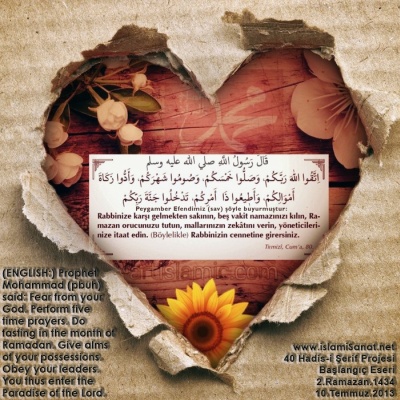 محمد
قال رسول الله صلي الله عليه وسلم
اِتَّقُوا اللهَ رَبَّكُمْ، وَصَلُّوا خَمْسَكُمْ، وَصُومُوا شَهْرَكُمْ، وَأَدُّوا زَكَاةَ
أَمْوَالِكُمْ، وَأَطِيعُوا ذَا أَمْرِكُمْ، تَدْخُلُوا جَنَّةَ رَبِّكُمْ
Peygamber Efendimiz (sav) şöyle buyurmuştur:
Rabbinize karşı gelmekten sakının, beş vakit namazınızı kılın, Ra-
mazan orucunuzu tutun, mallarınızın zekâtını verin, yöneticileri-
nize itaat edin. (Böylelikle) Rabbinizin cennetine girersiniz.
Tirmizî, Cum'a, 80.
(ENGLISH:) Prophet
Mohammad (pbuh)
said: Fear from your
God. Perform five
time prayers. Do
fasting in the month of
Ramadan. Give alms
of your possessions.
Obey your leaders.
You thus enter the
Paradise of the Lord.
www.islamiSanat.net
40 Hadis-i Şerif Projesi
Başlangıç Eseri
2.Ramazan.1434
10.Temmuz.2013